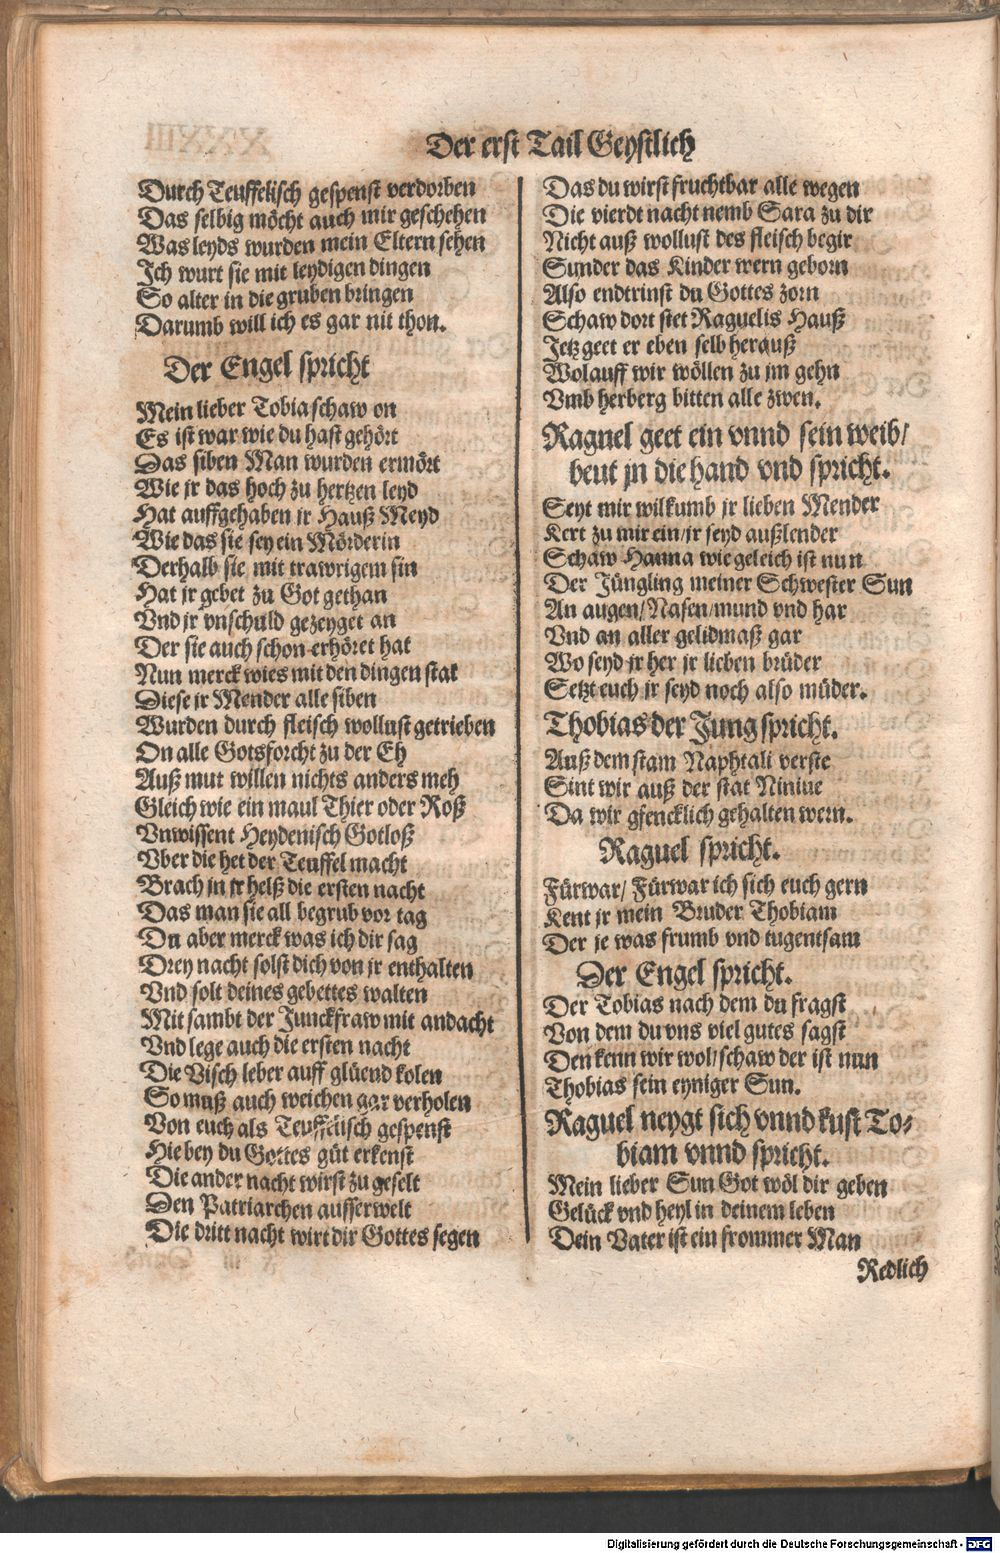 Der erst Tail Geystlich
Durch Teuffelisch gespenst verdorben
Das selbig möcht auch mir geschehen
Was leyds wurden mein Eltern sehen
Ich wurt sie mit leydigen dingen
So alter in die gruben bringen
Darumb will ich es gar nit thon.
Der Engel spricht
Mein lieber Tobia schaw on
Es ist war wie du hast gehört
Das siben Man wurden ermört
Wie jr das hoch zu hertzen leyd
Hat auffgehaben jr Hauß Meyd
Wie das sie sey ein Mörderin
Derhalb sie mit trawrigem sin
Hat jr gebet zu Got gethan
Vnd jr vnschuld gezeyget an
Der sie auch schon erhöret hat
Nun merck wies mit den dingen stat
Diese jr Mender alle siben
Wurden durch fleisch wollust getrieben
On alle Gotsforcht zu der Eh
Auß mut willen nichts anders meh
Gleich wie ein maul Thier oder Roß
Vnwissent Heydenisch Gotloß
Vber die het der Teuffel macht
Brach jn jr helß die ersten nacht
Das man sie all begrub vor tag
Du aber merck was ich dir sag
Drey nacht solst dich von jr enthalten
Vnd solt deines gebettes walten
Mit sambt der Junckfraw mit andacht
Vnd lege auch die ersten nacht
Die Visch leber auff glüend kolen
So muß auch weichen gar verholen
Von euch als Teuffelisch gespenst
Hie bey du Gottes güt erkenst
Die ander nacht wirst zu geselt
Den Patriarchen ausserwelt
Die dritt nacht wirt dir Gottes segen
Das du wirst fruchtbar alle wegen
Die vierdt nacht nemb Sara zu dir
Nicht auß wollust des fleisch begir
Sunder das Kinder wern geborn
Also endtrinst du Gottes zorn
Schaw dort stet Raguelis Hauß
Jetz geet er eben selb herauß
Wolauff wir wöllen zu jm gehn
Vmb herberg bitten alle zwen.
Raguel geet ein vnnd sein weib/
beut jn die hand vnd spricht.
Seyt mir wilkumb jr lieben Mender
Kert zu mir ein/jr seyd außlender
Schaw Hanna wie geleich ist nun
Der Jüngling meiner Schwester Sun
An augen/Nasen/mund vnd har
Vnd an aller gelidmaß gar
Wo seyd jr her jr lieben brüder
Setzt euch jr seyd noch also müder.
Thobias der Jung spricht.
Auß dem stam Naphtali verste
Sint wir auß der stat Niniue
Da wir gfencklich gehalten wern.
Raguel spricht.
Fürwar/ Fürwar ich sich euch gern
Kent jr mein Bruder Thobiam
Der je was frumb vnd tugentsam
Der Engel spricht.
Der Tobias nach dem du fragst
Von dem du vns viel gutes sagst
Den kenn wir wol/schaw der ist nun
Thobias sein eyniger Sun.
Raguel neygt sich vnnd kust To⸗
biam vnnd spricht.
Mein lieber Sun Got wöl dir geben
Gelück vnd heyl in deinem leben
Dein Vater ist ein frommer Man
Redlich
Digitalisierung gefördert durch die Deutsche Forschungsgemeinschaft - DFG